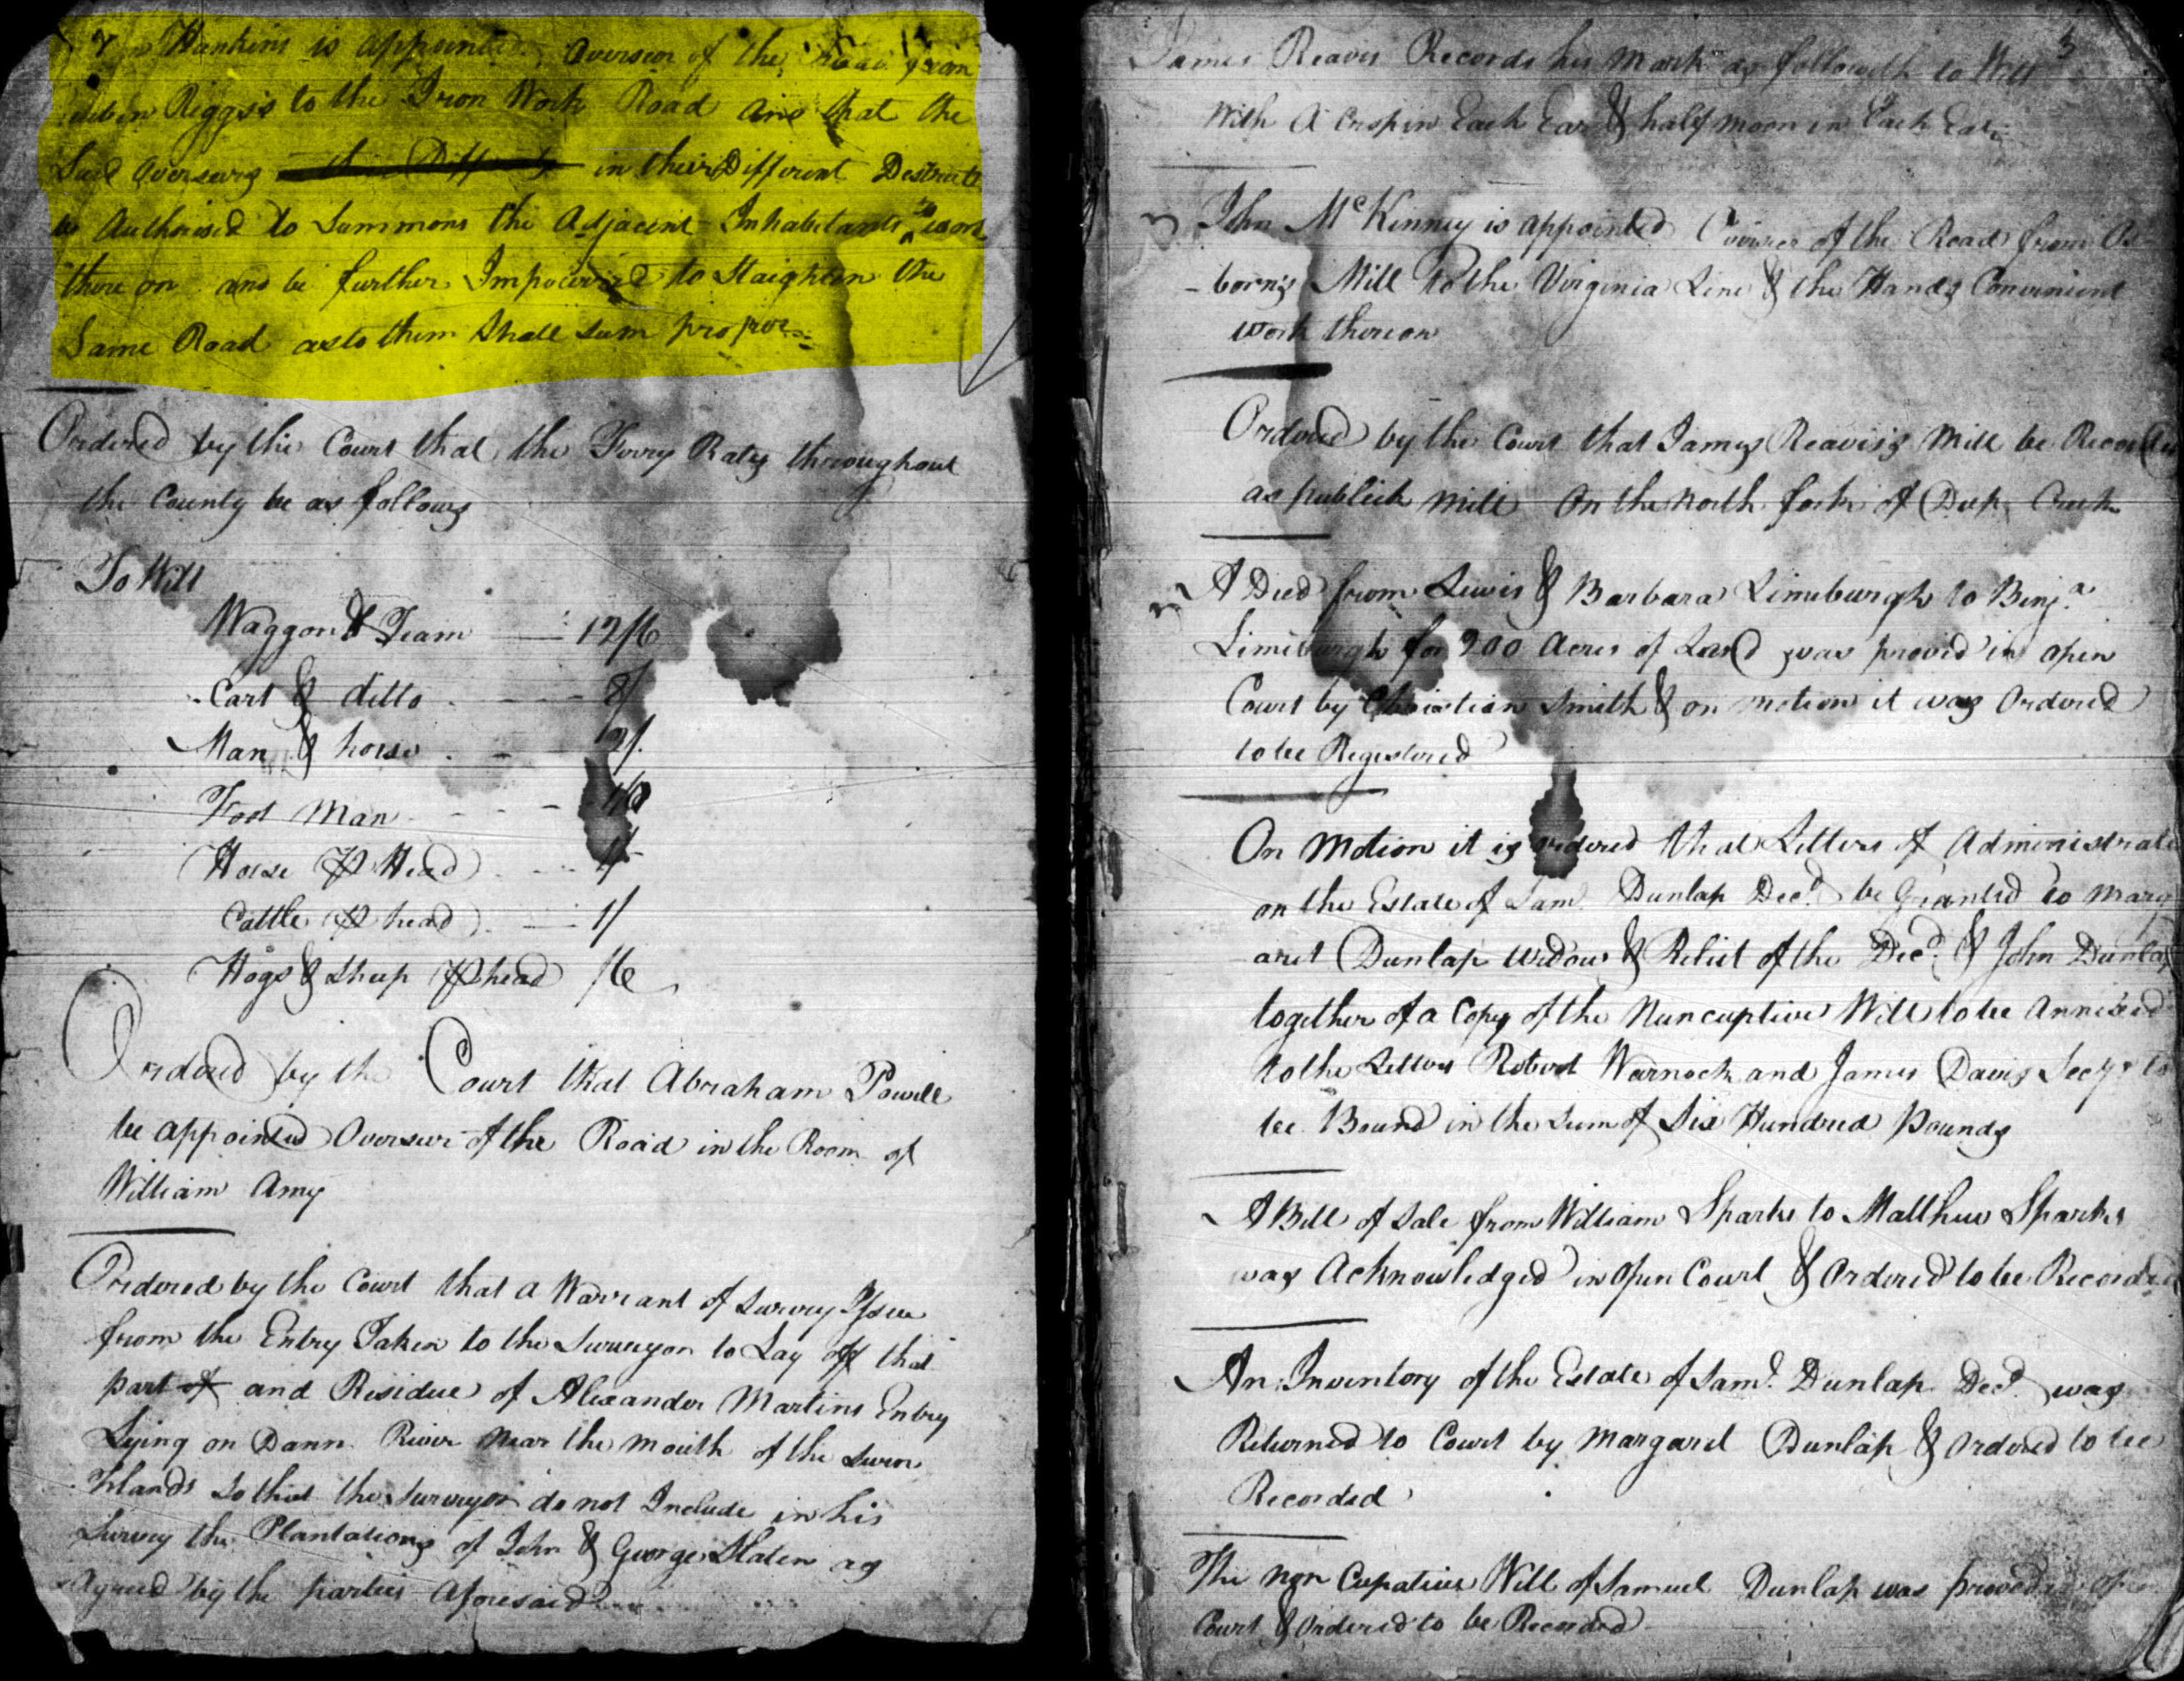 Hankins is appointed Overseer of the Road from
Reuben Riggs's to the Iron Work Road and that the
Said Overseers in their Different Destricts
be Authorised to Summons the Adjacent Inhabitants to work
there on and be further Impowered to Staighten the
Same Road as to them Shall Seem proper
Ordered by the Court that the Ferry Rates throughout
the County be as follows
To Witt
Waggon & Team 12/6
Cart & ditto 8/
Man & horse 2/.
Foot Man
Horse ⅌ Head
Cattle ⅌ head 1/
Hogs & Sheep ⅌ head /6
Ordered by the Court that Abraham Powell
be appointed Overseer of the Road in the Room of
William Amy
Ordered by the Court that a Warrant of Survey Issue
from the Entry Taken to the Surveyor to Lay off that
part of and Residue of Alexander Martins Entry
Lying on Dann River near the mouth of the
Islands So that the Surveyor do not Include in his
Survey the Plantations of John & George Slaten as
Agreed by the parties Aforesaid
3
James Reavis Records his Mark as followeth to Witt
With A Cropin Each Ear & half moon in Each Ear
John McKinney is appointed Overseer of the Road from Os-
-born's Mill to the Virginia Line & the Hands Convenient
work thereon
Ordered by the Court that James Reavis's Mill be Recorded
as publick Mill On the North fork of Deep Creek
A Deed from Lewis & Barbara Limeburgh to Benj.a
Limeburgh for 200 Acres of Land was proved in open
Court by Christian Smith & on motion it was Ordered
to be Registered
On Motion it is ordered that Letters of Administrati
on the Estate of Sam.l Dunlap Dec.d be Granted to Marg
aret Dunlap Widow & Relict of the Dec.d & John Dunlap
together of a Copy of the Nuncuptive Will to be Annexed
to the Letters Robert Warnock and James Davis Secy.s to
be Bound in the Sum of Six Hundred Pounds
A Bill of Sale from William Sparks to Matthew Sparks
was Acknowledged in Open Court & Ordered to be Recorded
An Inventory of the Estate of Sam.l Dunlap Dec.d was
Returned to Court by Margaret Dunlap & Ordered to be
Recorded
The non Cupative Will of Samuel Dunlap was proved in Open
Court & Ordered to be Recorded